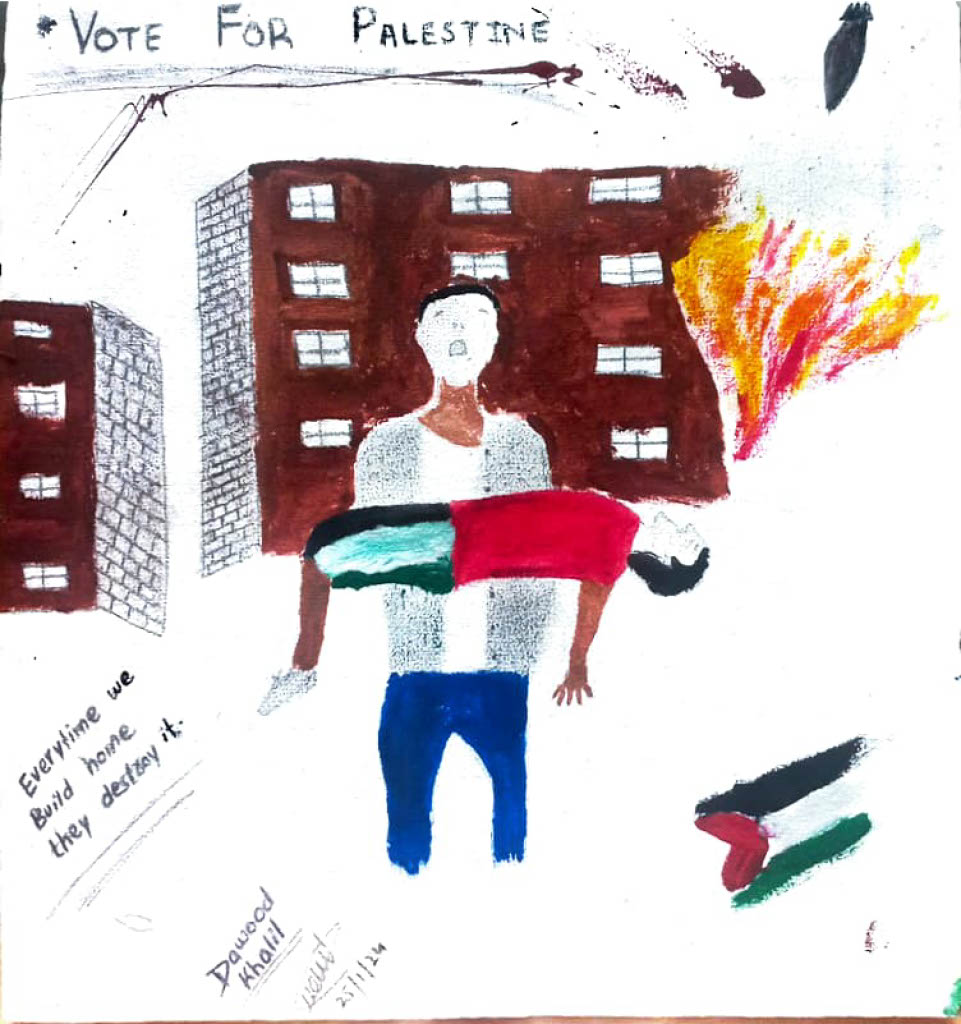 * VOTE FOR PALESTINE
Everytime we
Build home
they destroy it.
Dawood
Khalil
25/1/24